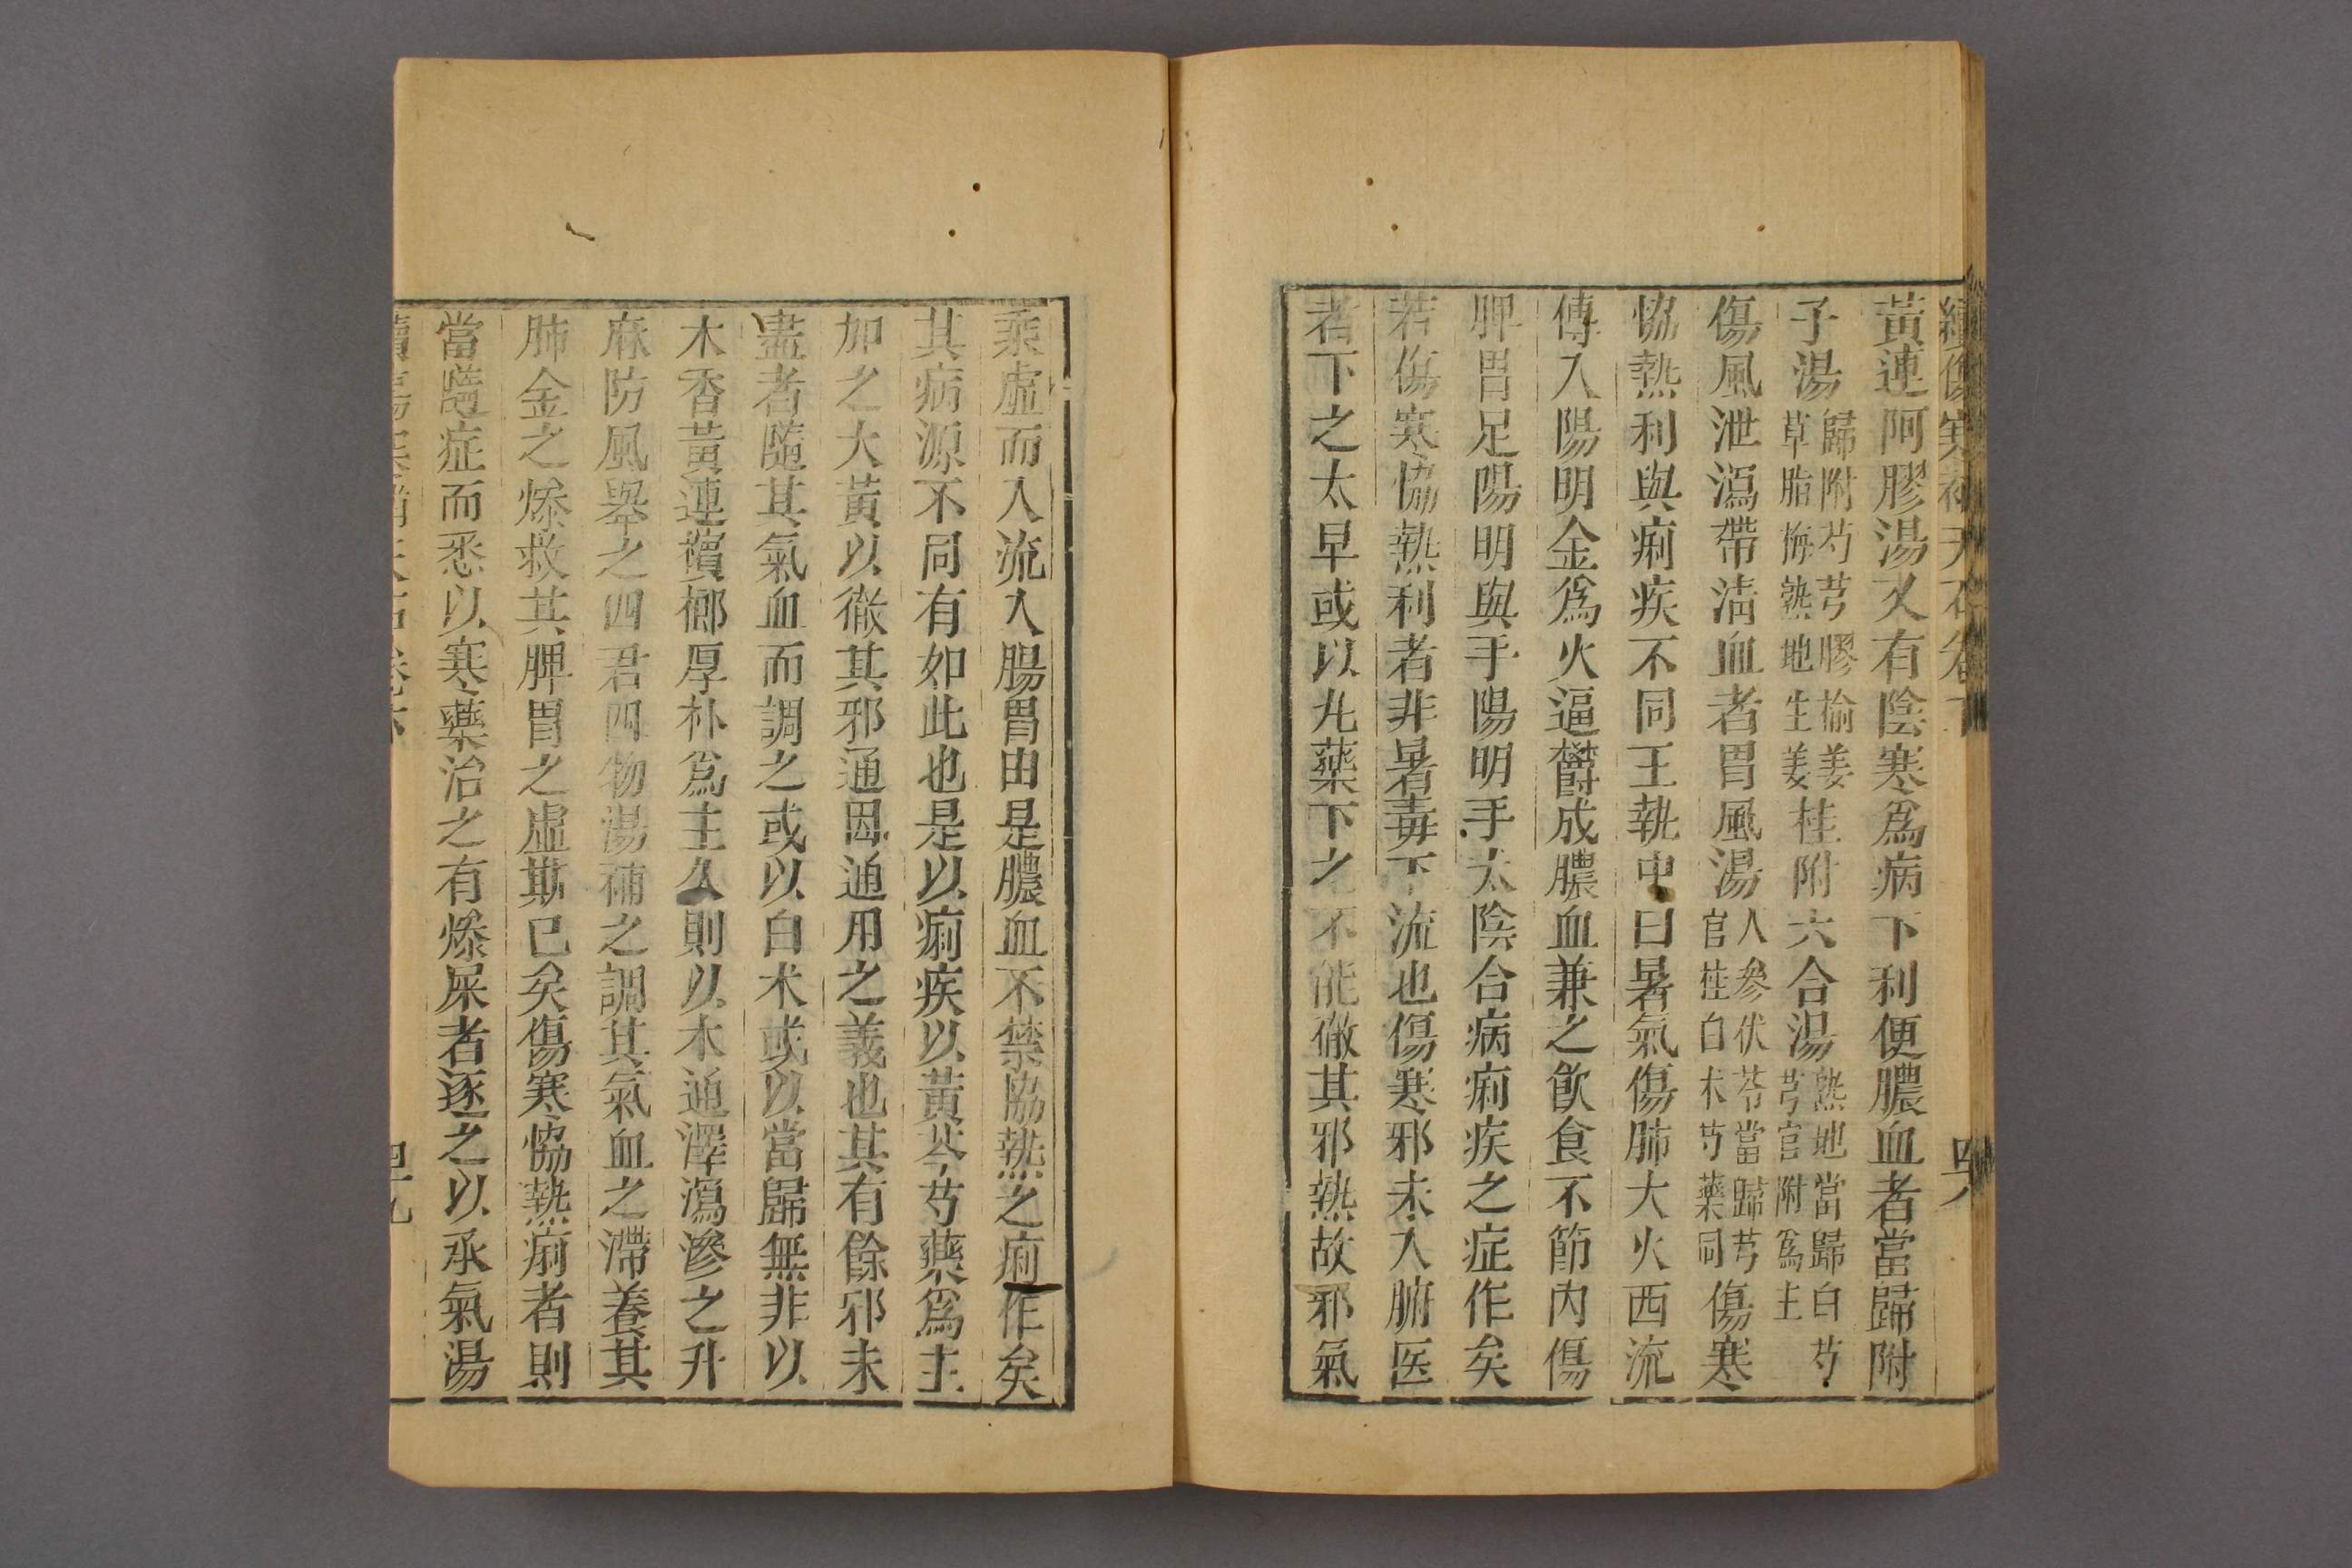 續傷寒補天石卷下 四八
黃連阿膠湯又有陰寒爲病下利便膿血者當歸附
子湯歸附芍芎膠榆姜草脂梅熟地生姜桂附六合湯熟地當歸白芍芎官附爲主
傷風泄瀉帶淸血者胃風湯人參伏苓當歸芎官桂白朮芍藥同傷寒
恊熱利與痢疾不同王執中曰暑氣傷肺大火西流
傳入陽明金爲火逼欝成膿血兼之飮食不節內傷
脾胃足陽明與手陽明手太陰合病痢疾之症作矣
若傷寒恊熱利者非暑毒下流也傷寒邪未入腑医
者下之太早或以丸藥下之不能徹其邪熱故邪氣
乘虛而入流入腸胃由是膿血不禁協熱之痢作矣
其病源不同有如此也是以痢疾以黃芩芍藥爲主
加之大黃以徹其邪通因通用之義也其有餘邪未
盡者隨其氣血而調之或以白朮或以當歸無非以
木香黃連檳榔厚朴爲主久則以木通澤瀉滲之升
麻防風舉之四君四物湯補之調其氣血之滯養其
肺金之燥救其脾胃之虛斯已矣傷寒恊熱痢者則
當隨症而悉以寒藥治之有燥屎者逐之以承氣湯
四九